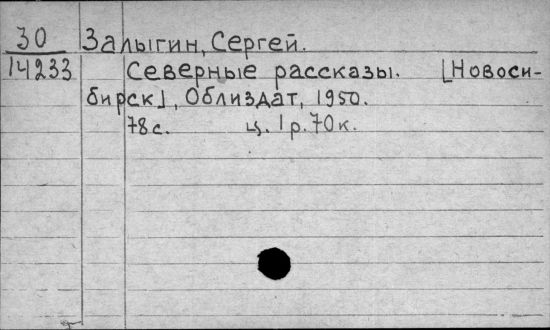 30 Залыгин, Сергей.
14233 Северные рассказы. [Новоси-
бирск], Облиздат, 1950.
78 с. ц. 1 р. 70 к.